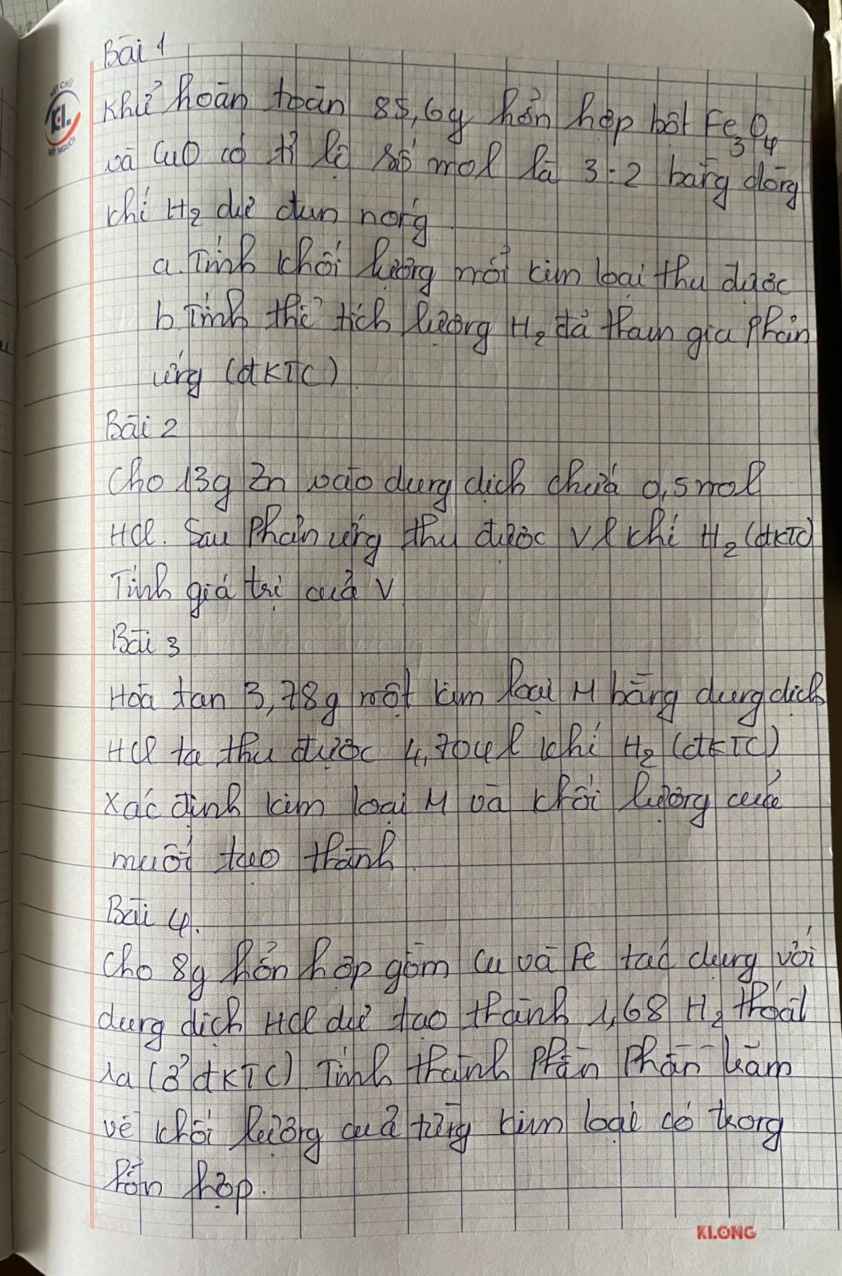 Bài 1
Khử hoàn toàn 85,6g hỗn hợp bột Fe3O4
và CuO có tỉ lệ số mol là 3:2 bằng dòng
khí H2 dư đun nóng.
a. Tính khối lượng mỗi kim loại thu được
b Tính thể tích lượng H2 đã tham gia phản
ứng (đKTC)
Bài 2
Cho 13g Zn vào dung dịch chứa 0,5 mol
HCl. Sau phản ứng thu được Vl khí H2 (đKTC)
Tính giá trị của V
Bài 3
Hoà tan 3,78g một kim loại M bằng dung dịch
HCl ta thu được 4,704l khí H2 (đKTC)
Xác định kim loại M và khối lượng của
muối tạo thành
Bài 4.
Cho 8g hỗn hợp gồm Cu và Fe tác dụng với
dung dịch HCl dư tạo thành 1,68 H2 thoát
ra (ở đKTC). Tính thành phần phần trăm
về khối lượng của từng kim loại có trong
hỗn hợp.
KLONG